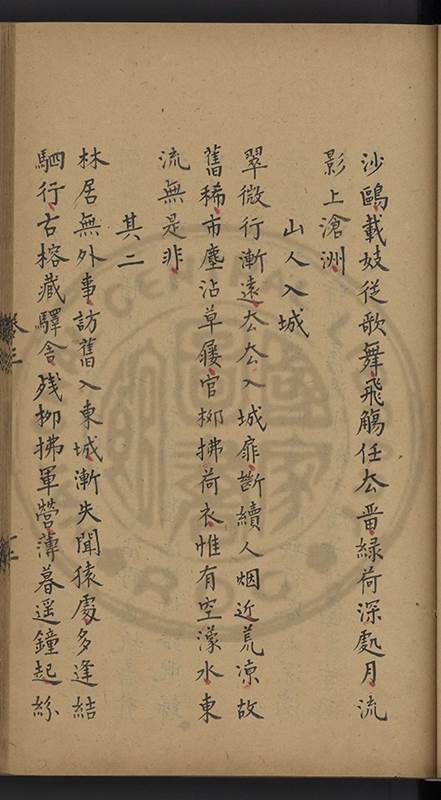 沙鷗載妓從歌舞飛觴任厺畱綠荷深處月流
影上滄洲
山人入城
翠微行漸遠厺厺入城扉斷續人烟近荒凉故
舊稀市塵沾草屨官柳拂荷衣惟有空濛水東
流無是非
其二
林居無外事訪舊入東城漸失聞猿處多逢結
駟行古榕藏驛舍殘柳拂軍營薄暮遥鐘起紛